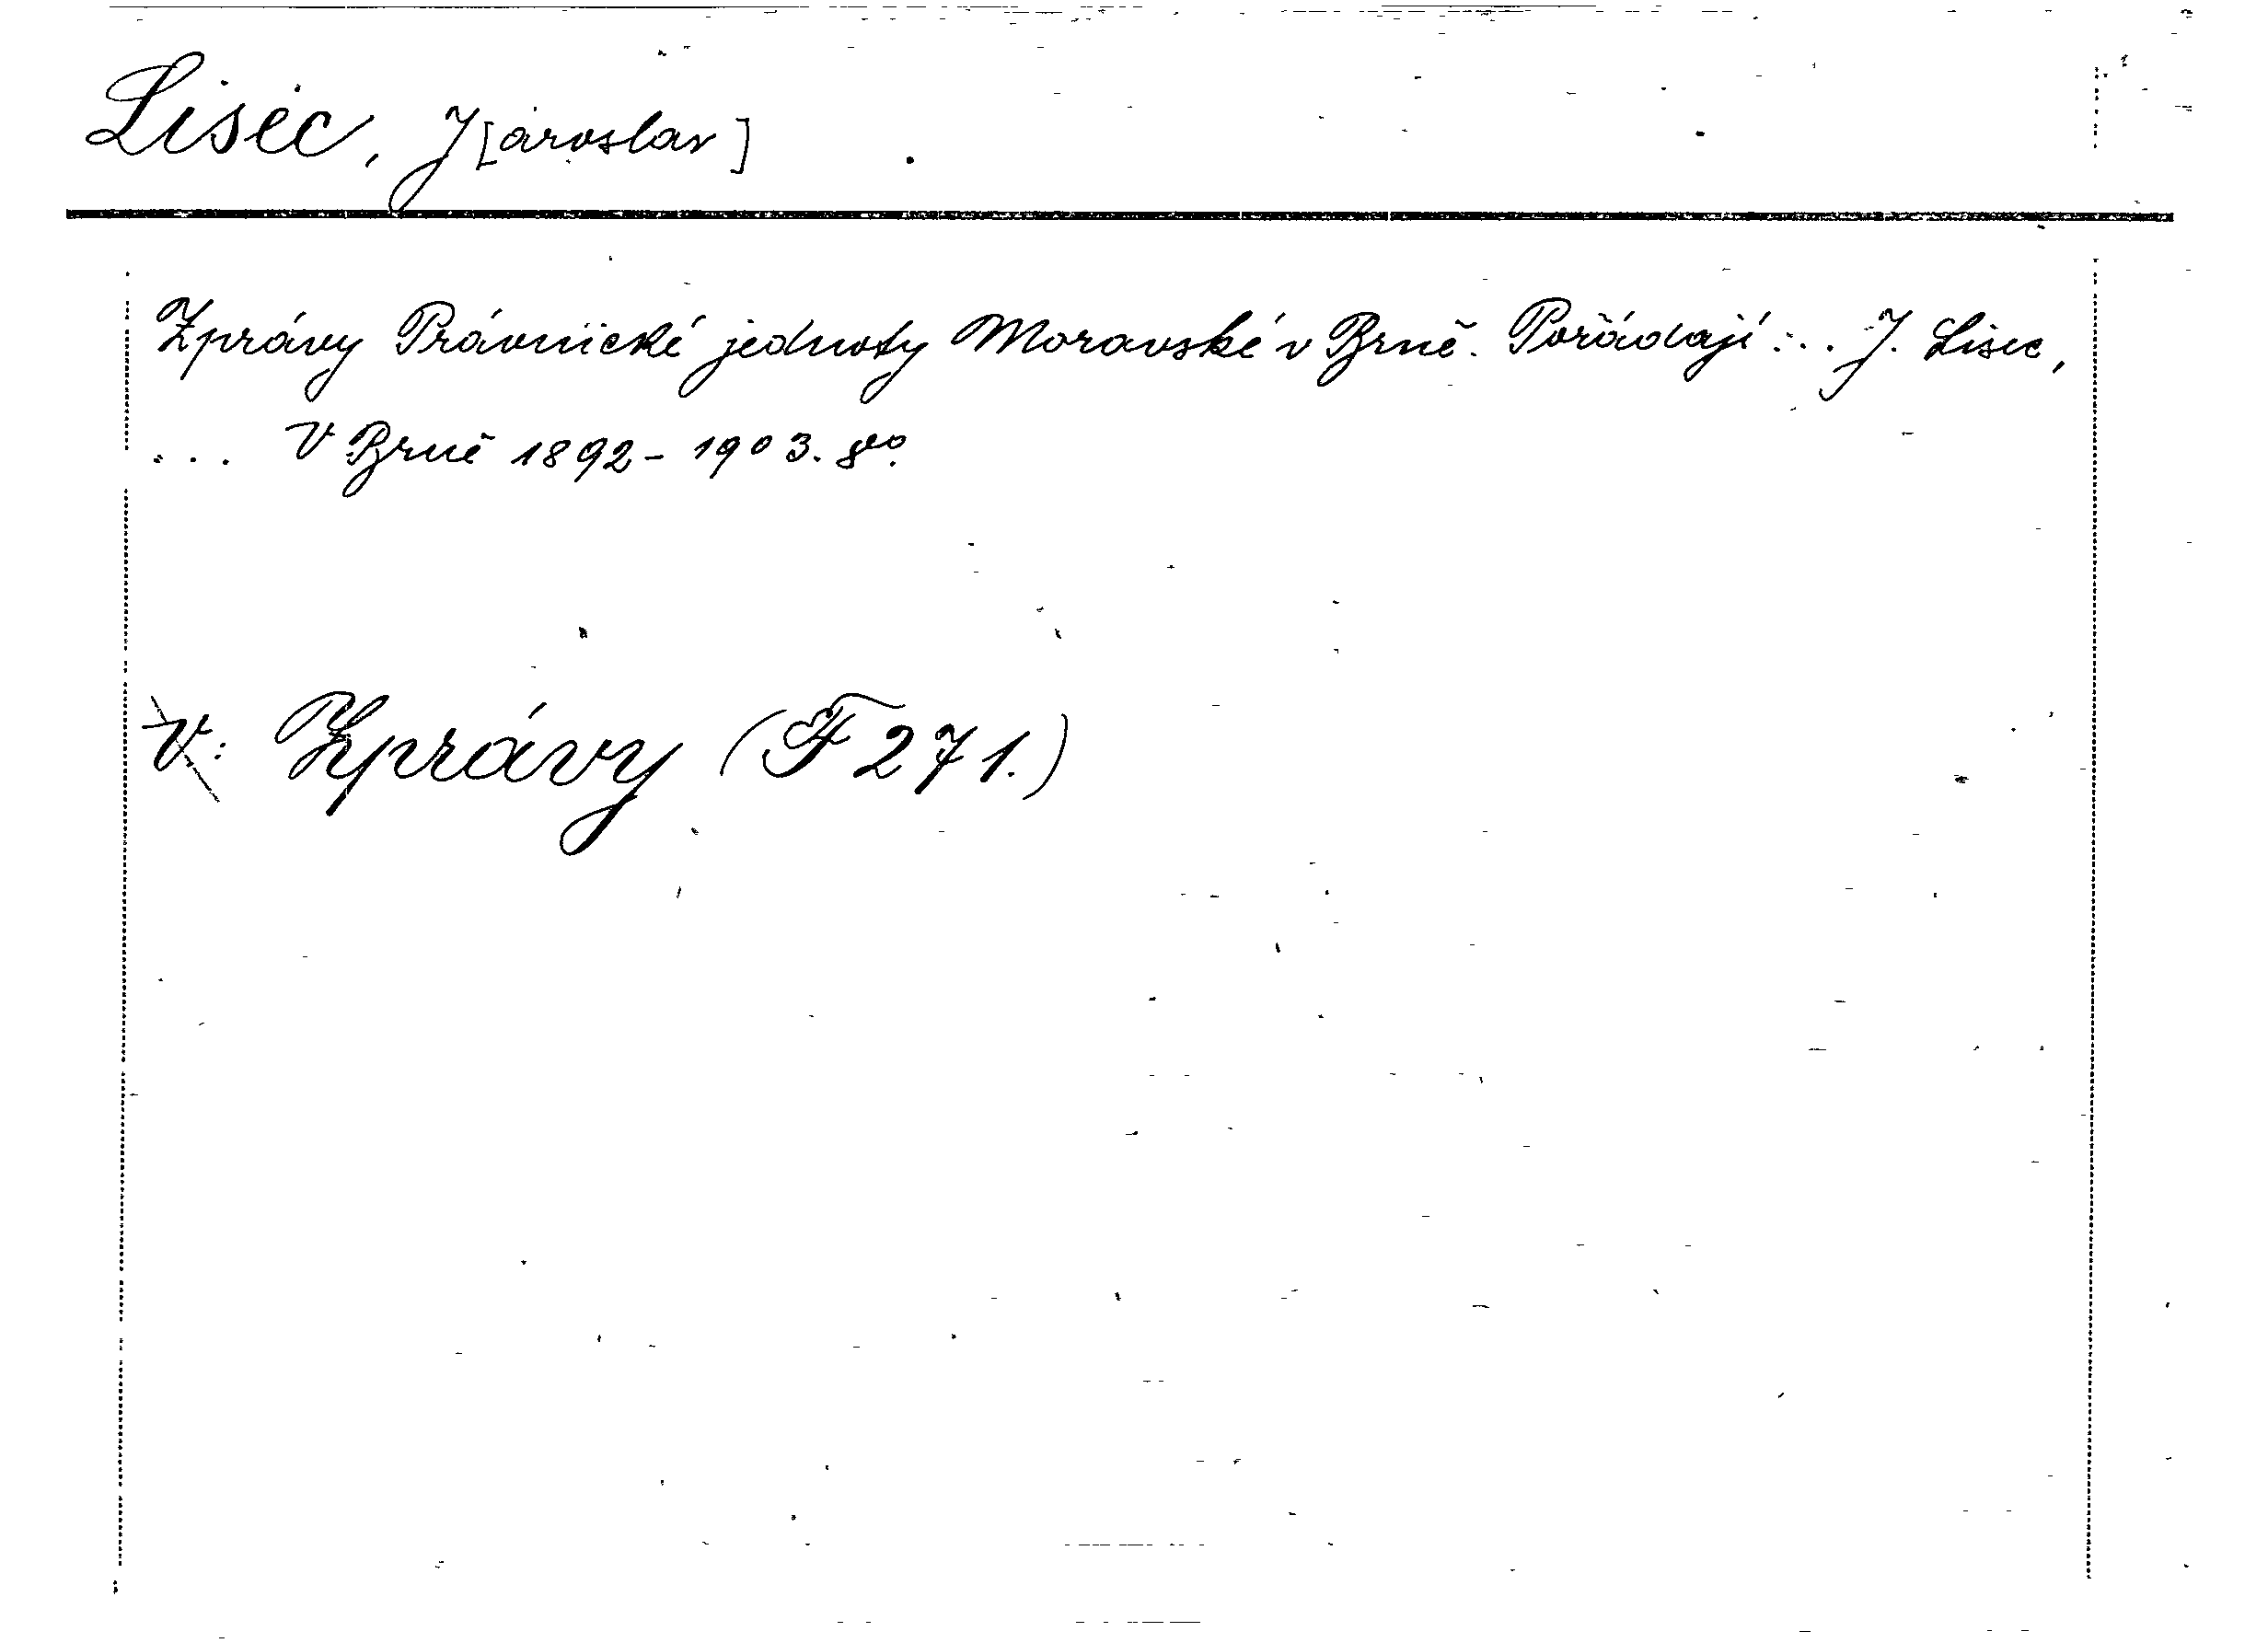 Lisec, J[aroslav]
Zprávy Právnické jednoty Moravské v Brně. Pořádají ... J. Lisec,
... V Brně 1892-1903. 8vo.
V: Zprávy (F 271.)